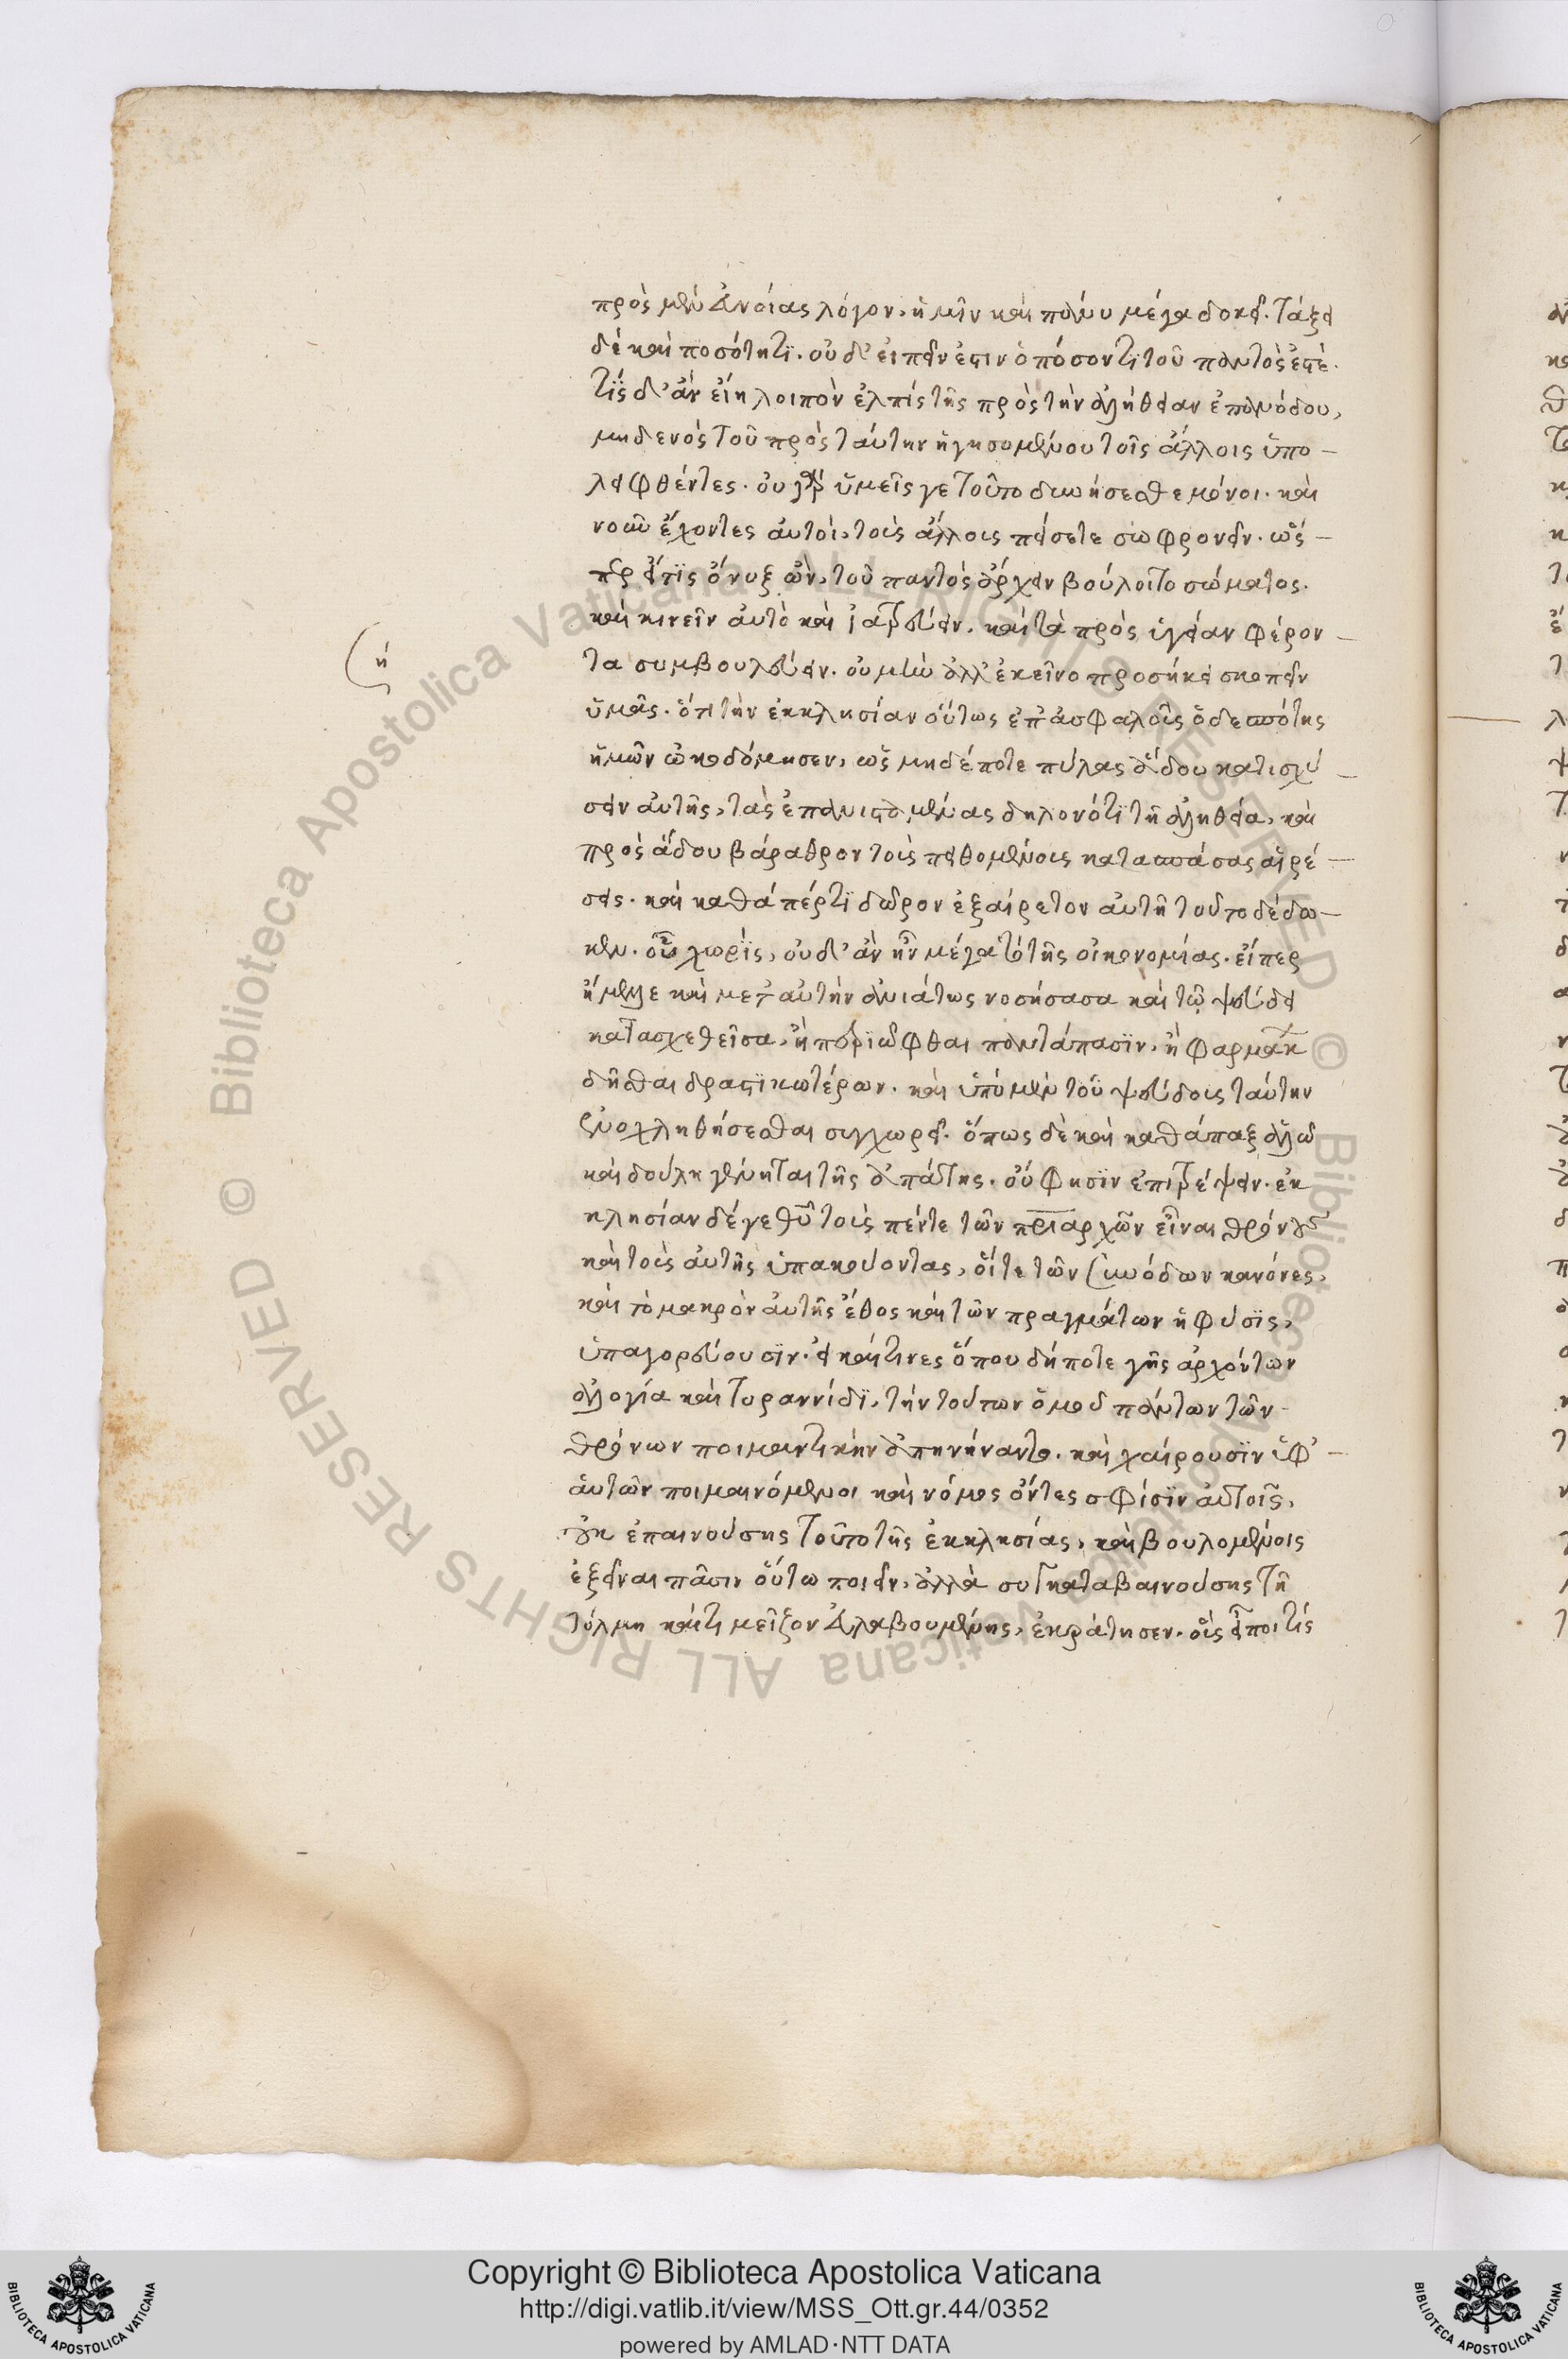 πρὸς μὲν ἀνοίας λόγον, ἡμῖν καὶ πάνυ μέγα δοκεῖ. τάξει
δὲ καὶ ποσότητι. οὐδ' εἰπεῖν ἐστιν ὁπόσον τι τοῦ παντός ἐστέ.
τίς δ' ἂν εἴη λοιπὸν ἐλπὶς τῆς πρὸς τὴν ἀλήθειαν ἐπανόδου,
μηδενὸς τοῦ πρὸς ταύτην ἡγησομένου τοῖς ἄλλοις ὑπο-
λειφθέντες. οὐ γὰρ ὑμεῖς γε τοῦτο δυνήσεσθε μόνοι. καὶ
νοῦν ἔχοντες αὐτοὶ, τοὺς ἄλλους πείσετε σωφρονεῖν. ὥς-
περ εἴ τις ὄνυξ ὢν, τοῦ παντὸς ἄρχειν βούλοιτο σώματος.
καὶ κινεῖν αὐτὸ καὶ ἰατρεύειν. καὶ τὰ πρὸς ὑγείαν φέρον-
τα συμβουλεύειν. οὐ μὴν ἀλλ' ἐκεῖνο προσήκει σκοπεῖν
ὑμᾶς. ὅτι τὴν ἐκκλησίαν οὕτως ἐπ' ἀσφαλοῦς ὁ δεσπότης
ἡμῶν ᾠκοδόμησεν, ὡς μηδέποτε πύλας ἅδου κατισχύ-
σειν αὐτῆς, τὰς ἐπανισταμένας δηλονότι τῇ ἀληθεία, καὶ
πρὸς ἅδου βάραθρον τοὺς πειθομένους κατασπάσας αἱρέ-
σεις. καὶ καθάπέρ τι δῶρον ἐξαίρετον αὐτῇ τοῦτο δέδω-
κεν. οὗ χωρὶς, οὐδ' ἂν ἦν μέγα τὸ τῆς οἰκονομίας. εἴπερ
ἤμελλε καὶ μετ' αὐτὴν ἀνιάτως νοσήσασα καὶ τῷ ψεύδει
κατασχεθεῖσα, ἢ περιῶφθαι παντάπασιν, ἢ φαρμάκων
δεῖσθαι δραστικωτέρων. καὶ ὑπὸ μὲν τοῦ ψεύδους ταύτην
ἐνοχληθήσεσθαι συγχωρεῖ. ὅπως δὲ καὶ καθάπαξ ἁλῶ
καὶ δούλη γένηται τῆς ἀπάτης. οὔ φησιν ἐπιτρέψειν. ἐκ
κλησίαν δέ γε θῦ τοὺς πέντε τῶν πριαρχῶν εἶναι θρόνους
καὶ τοὺς αὐτῆς ὑπακούοντας, οἵ τε τῶν συνόδων κανόνες,
καὶ τὸ μακρὸν αὐτῆς ἔθος καὶ τῶν πραγμάτων ἡ φύσις,
ὑπαγορεύουσιν. εἰ καί τινες ὅπου δήποτε γῆς ἀρχόντων
ἀλογία καὶ τυραννίδι, τὴν τούτων ὁμοῦ πάντων τῶν
θρόνων ποιμαντικὴν ἀπηνήναντο. καὶ χαίρουσιν ὑφ'-
αὑτῶν ποιμαινόμενοι καὶ νόμος ὄντες σφίσιν αὐτοῖς,
οὐκ ἐπαινούσης τοῦτο τῆς ἐκκλησίας, καὶ βουλομένοις
ἐξεῖναι πᾶσιν οὕτω ποιεῖν, ἀλλὰ συγκαταβαινούσης τῇ
τόλμη καί τι μεῖζον εὐλαβουμένης, ἐκράτησεν. οἷς εἴποι τίς
ή
Copyright © Biblioteca Apostolica Vaticana
http://digi.vatlib.it/view/MSS_Ott.gr.44/0352
powered by AMLAD·NTT DATA